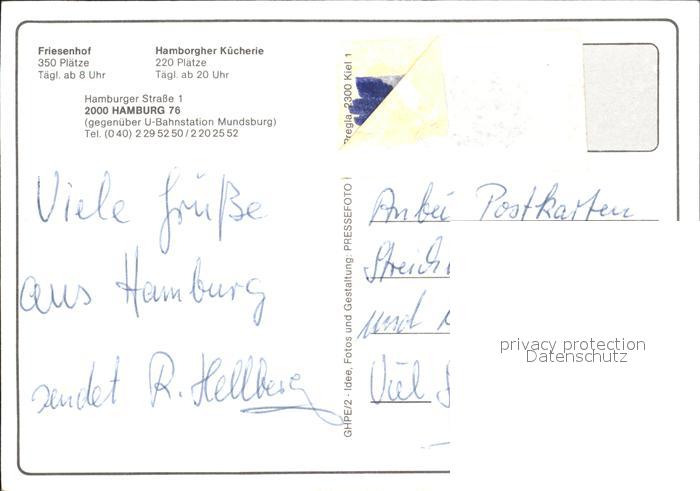 Friesenhof
350 Plätze
Tägl. ab 8 Uhr
Hamborgher Kücherie
220 Plätze
Tägl. ab 20 Uhr
Hamburger Straße 1
2000 HAMBURG 76
(gegenüber U-Bahnstation Mundsburg)
Tel. (0 40) 2 29 52 50 / 2 20 25 52
Viele Grüße
aus Hamburg
sendet R. Hellberg
GHPE/2 - Idee, Fotos und Gestaltung: PRESSEFOTO
Pregla, 2300 Kiel 1
Anbei Postkarten
und
Viel
privacy protection
Datenschutz